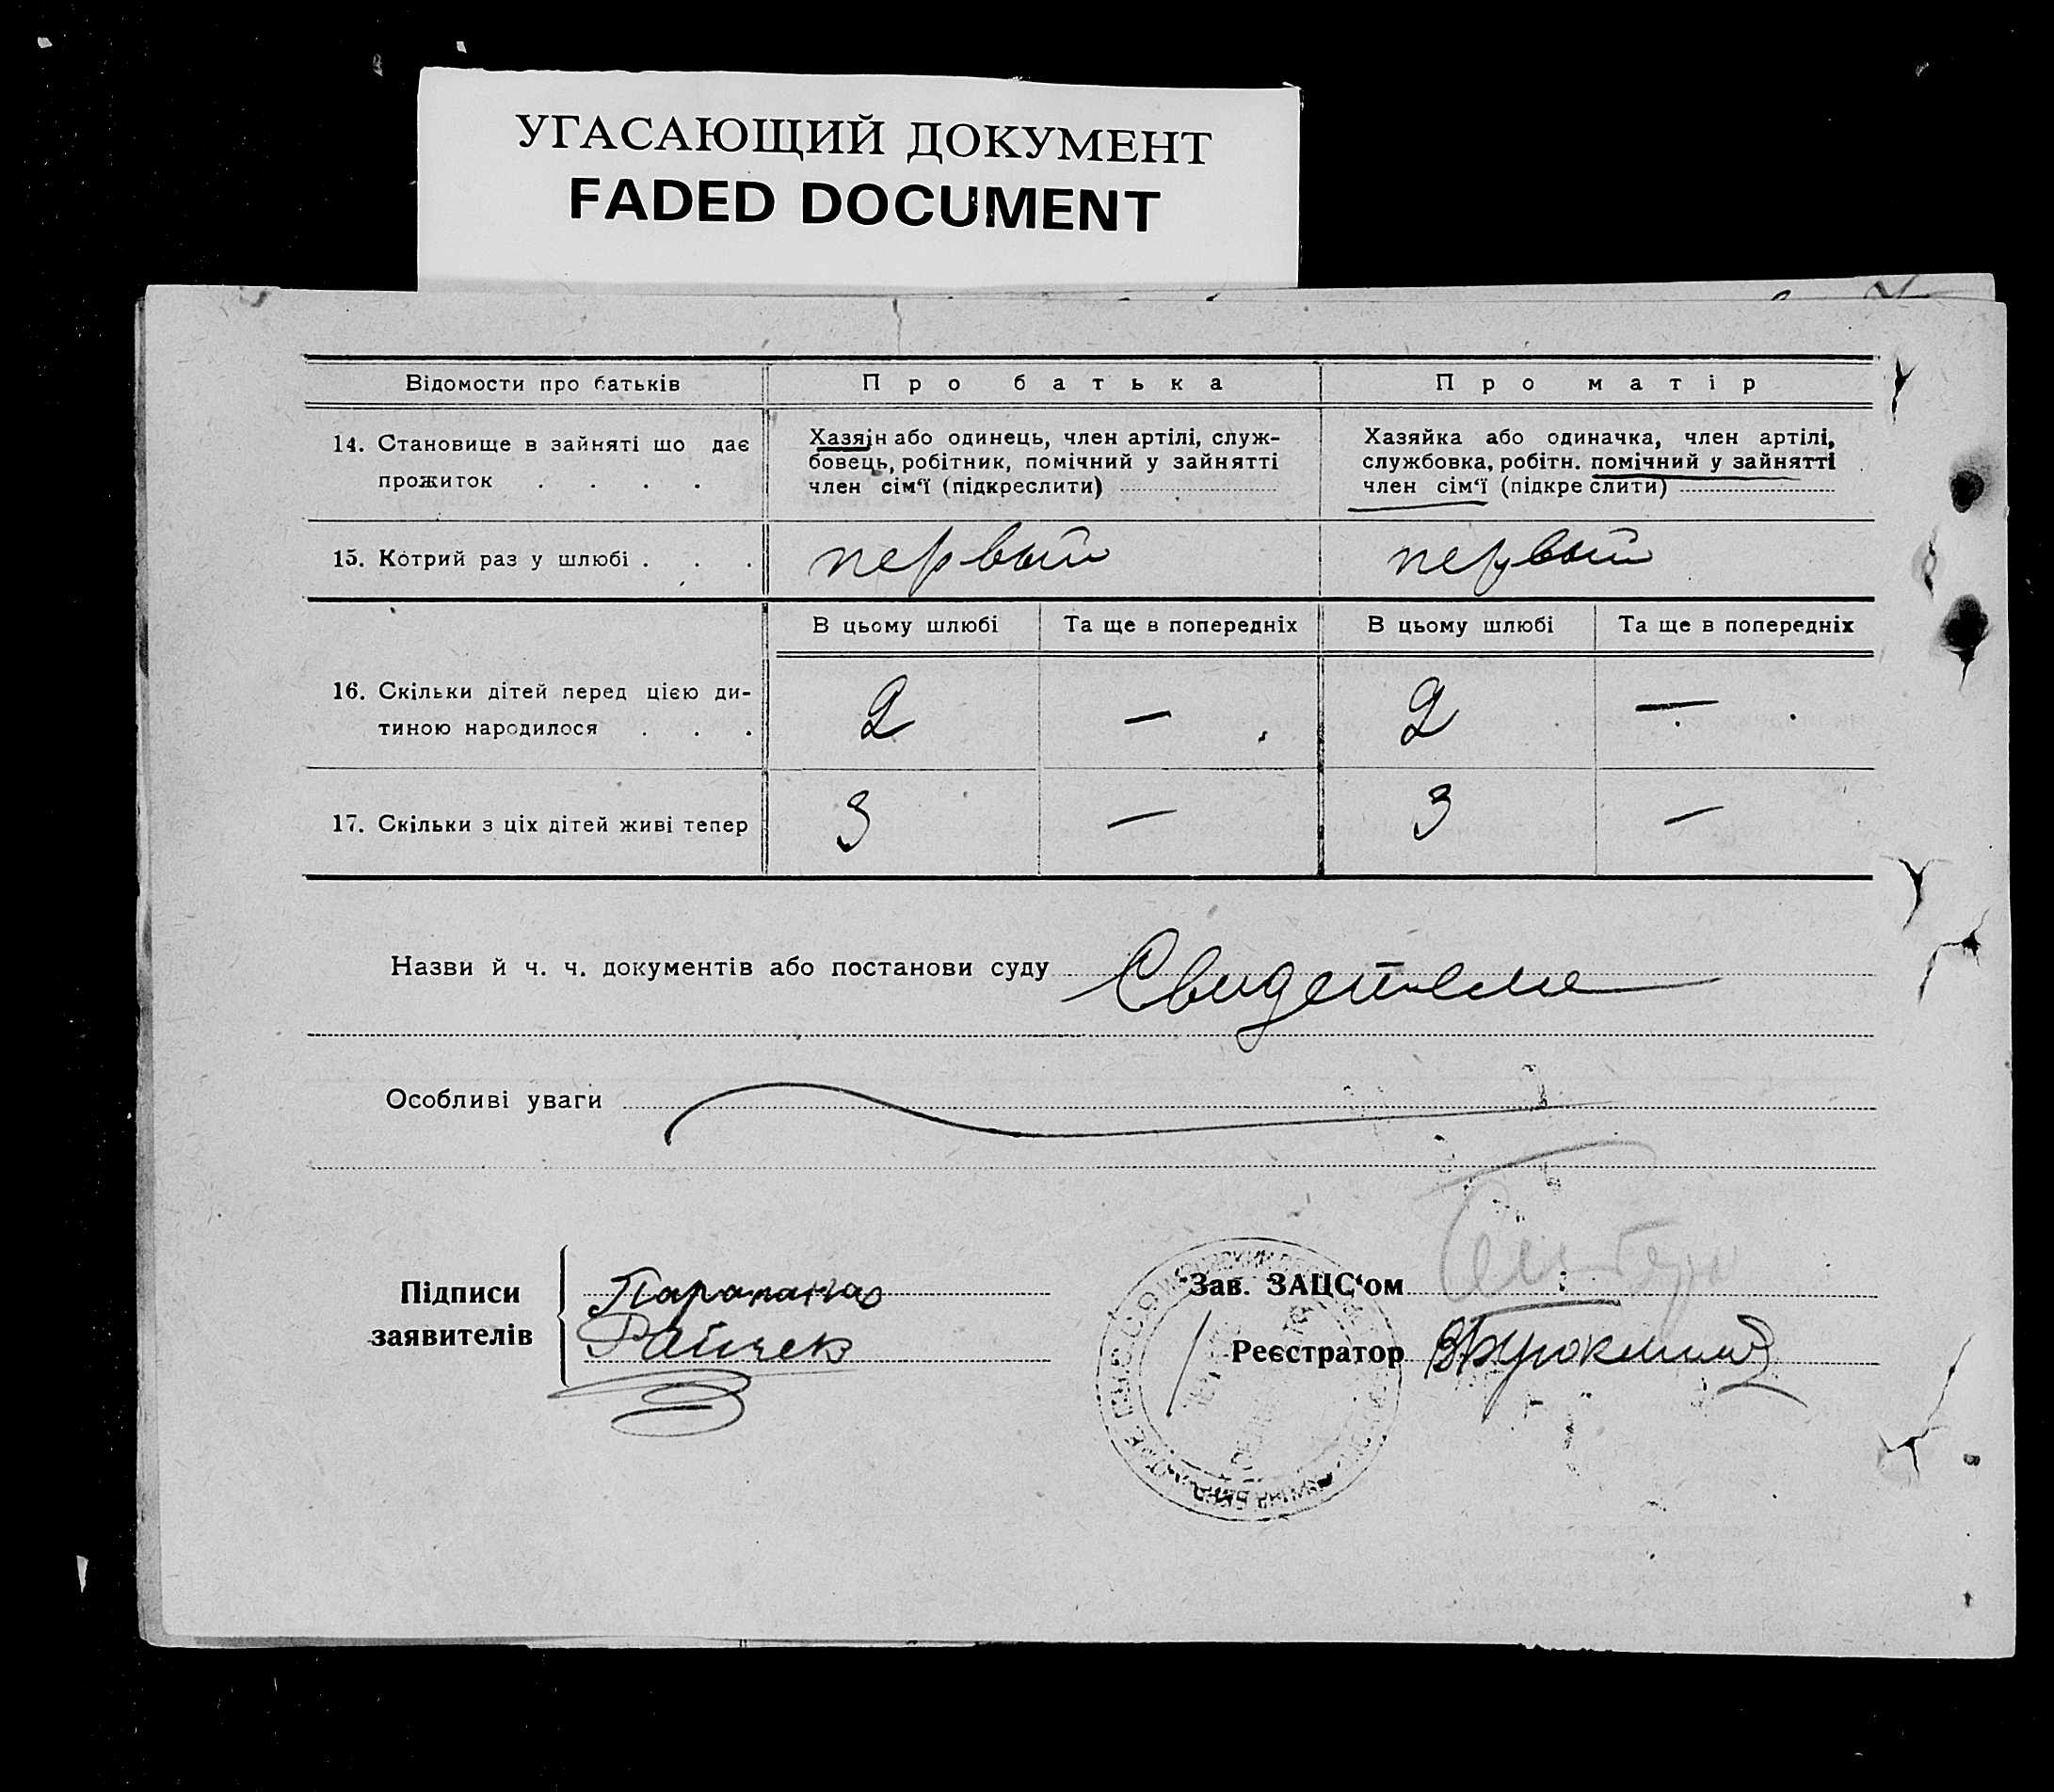 УГАСАЮЩИЙ ДОКУМЕНТ
FADED DOCUMENT
Відомости про батьків Про батька Про матір
14. Становище в зайняті що дає прожиток . . . .
Хазяїн або одинець, член артілі, служ-
бовець, робітник, помічний у зайнятті
член сім‘ї (підкреслити)
Хазяйка або одиначка, член артілі,
службовка, робітн. помічний у зайнятті
член сім‘ї (підкреслити)
15. Котрий раз у шлюбі . . . первый первый
В цьому шлюбі Та ще в попередніх В цьому шлюбі Та ще в попередніх
16. Скільки дітей перед цією ди-
тиною народилося . . . 2 — 2 —
17. Скільки з ціх дітей живі тепер 3 — 3 —
Назви й ч. ч. документів або постанови суду Свидетели
Особливі уваги
Підписи
заявителів
Зав. ЗАЦС‘ом
Реєстратор